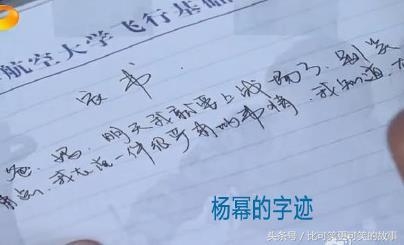 航空大学飞行基础
家书
爸.妈.明天我就要上战场了.别笑
我在说一件很严肃的事情.我知道.
杨幂的字迹
头条号 / 比可笑更可笑的故事